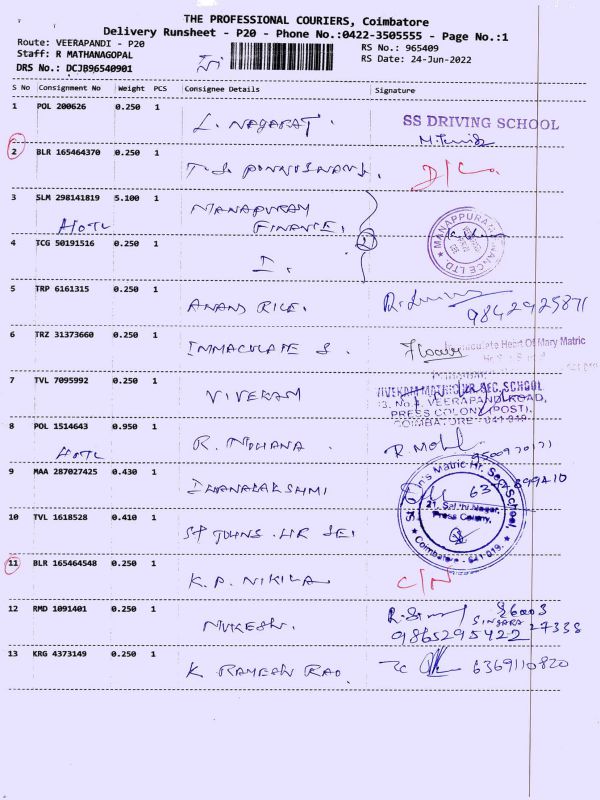 THE PROFESSIONAL COURIERS, Coimbatore
Delivery Runsheet - P20 - Phone No.:0422-3505555 - Page No.:1
Route: VEERAPANDI - P20
RS No.: 965409
Staff: R MATHANAGOPAL
RS Date: 24-Jun-2022
DRS No.: DCJB96540901
S No Consignment No Weight PCS Consignee Details Signature
1 POL 200626 0.250 1 L. NAGARAJ. SS DRIVING SCHOOL
2 BLR 165464370 0.250 1 D/C
3 SLM 298141819 5.100 1 MANAPURAM
FINANCE. MANAPPURAM FINANCE LTD
4 TCG 50191516 0.250 1 I.
5 TRP 6161315 0.250 1 ANAND RICE. 9842925871
6 TRZ 31373660 0.250 1 IMMACULATE S. Immaculate Heart Of Mary Matric
7 TVL 7095992 0.250 1 VIVEKAM VIVEKAM MATRIC HR SEC. SCHOOL
VEERAPANDI ROAD,
PRESS COLONY (POST),
COIMBATORE - 641 019.
8 POL 1514643 0.950 1 R. MOHANA. R. Moh
9500970171
9 MAA 287027425 0.430 1 DHANALAKSHMI
10 TVL 1618528 0.410 1 ST JOHNS. HR SE. St. John's Matric Hr. Sec. School,
Press Colony,
Coimbatore - 641 019.
11 BLR 165464548 0.250 1 K. P. NIKILA C/N
12 RMD 1091401 0.250 1 MUKESH. SINGARA
9865295422 27338
13 KRG 4373149 0.250 1 K RAMESH RAO. 6369110820